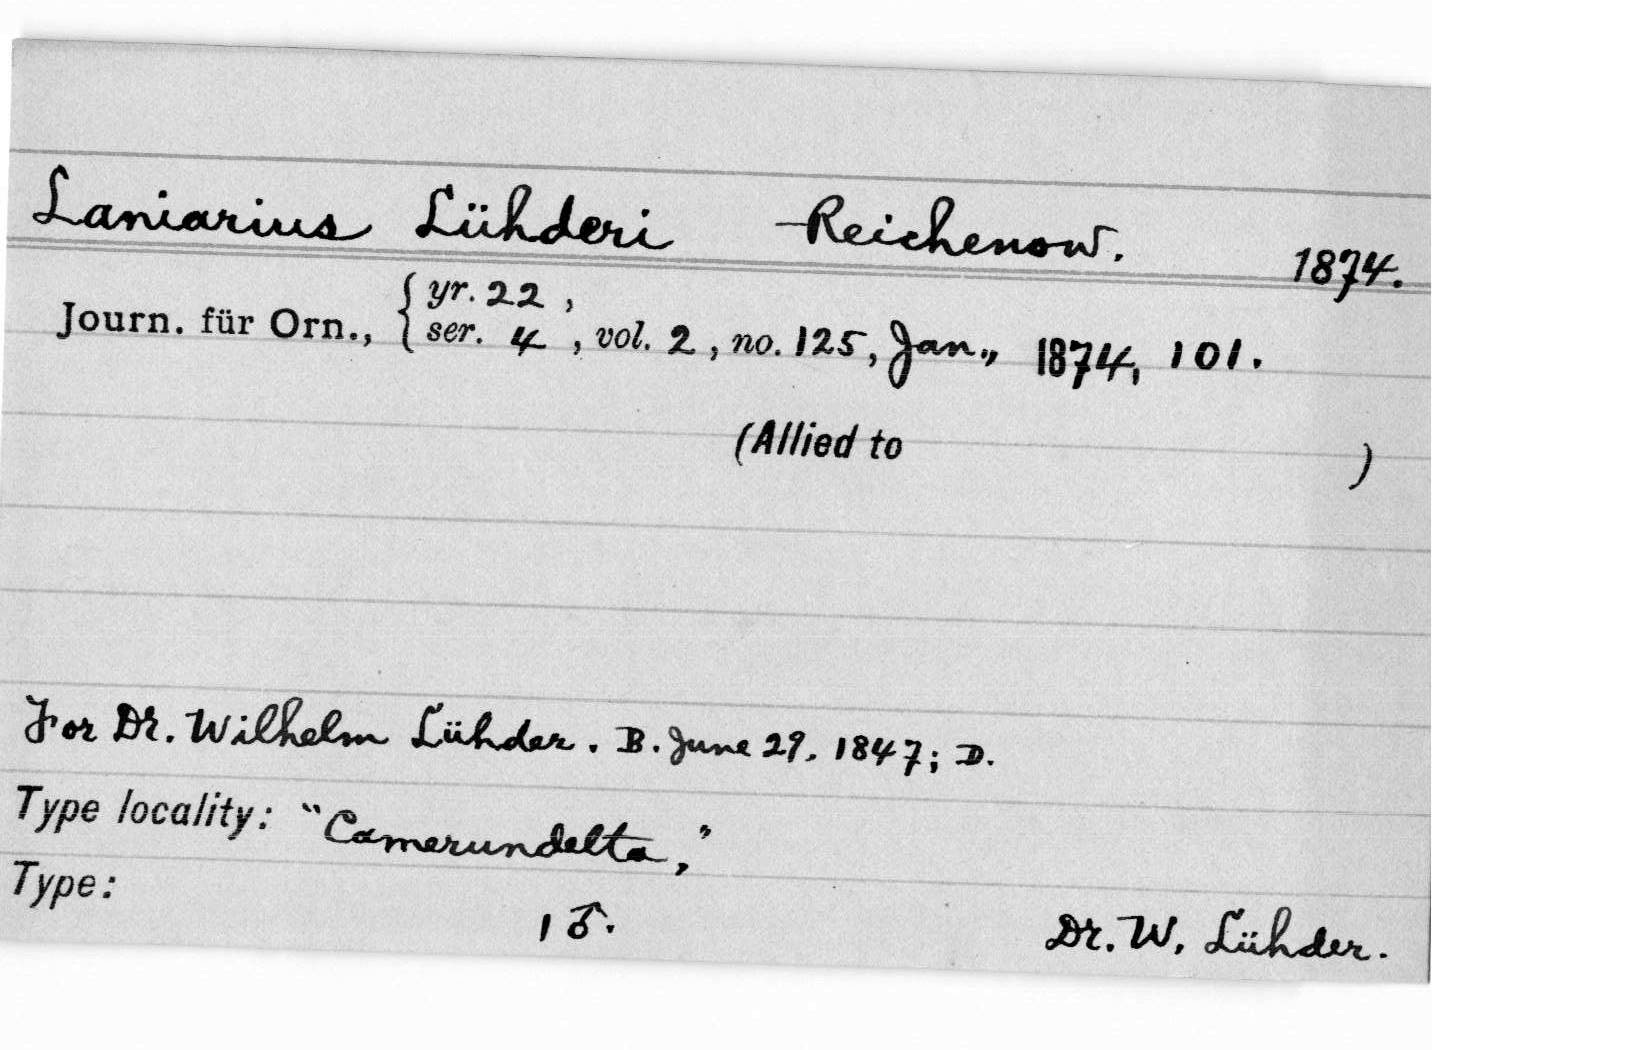 Laniarius Lühderi Reichenow. 1874.
Journ. für Orn., { yr. 22 ,
ser. 4 , vol. 2 , no. 125, Jan., 1874, 101.
(Allied to )
For Dr. Wilhelm Lühder. B. June 29, 1847; D.
Type locality: "Camerundelta,"
Type:
1 ♂. Dr. W. Lühder.